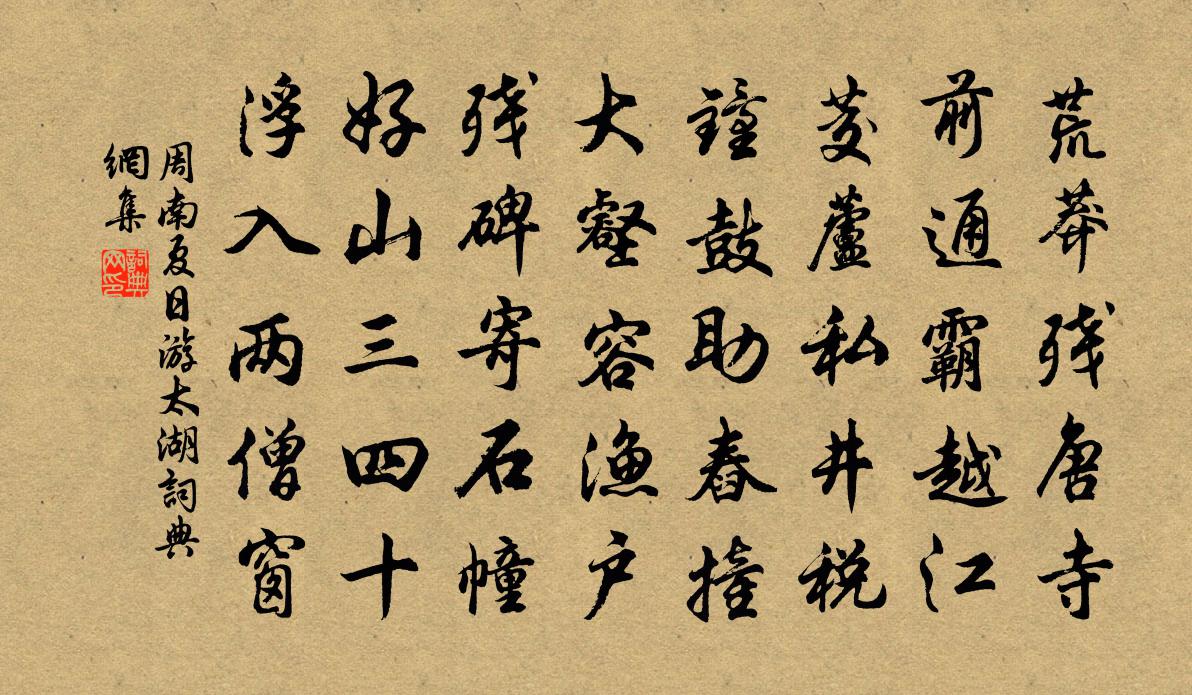 荒莽残唐寺
前通霸越江
茭蘆私井税
鐘鼓助舂撞
大壑容漁户
残碑寄石幢
好山三四十
浮入两僧窗
周南夏日游太湖詞典
網集
詞典
网印